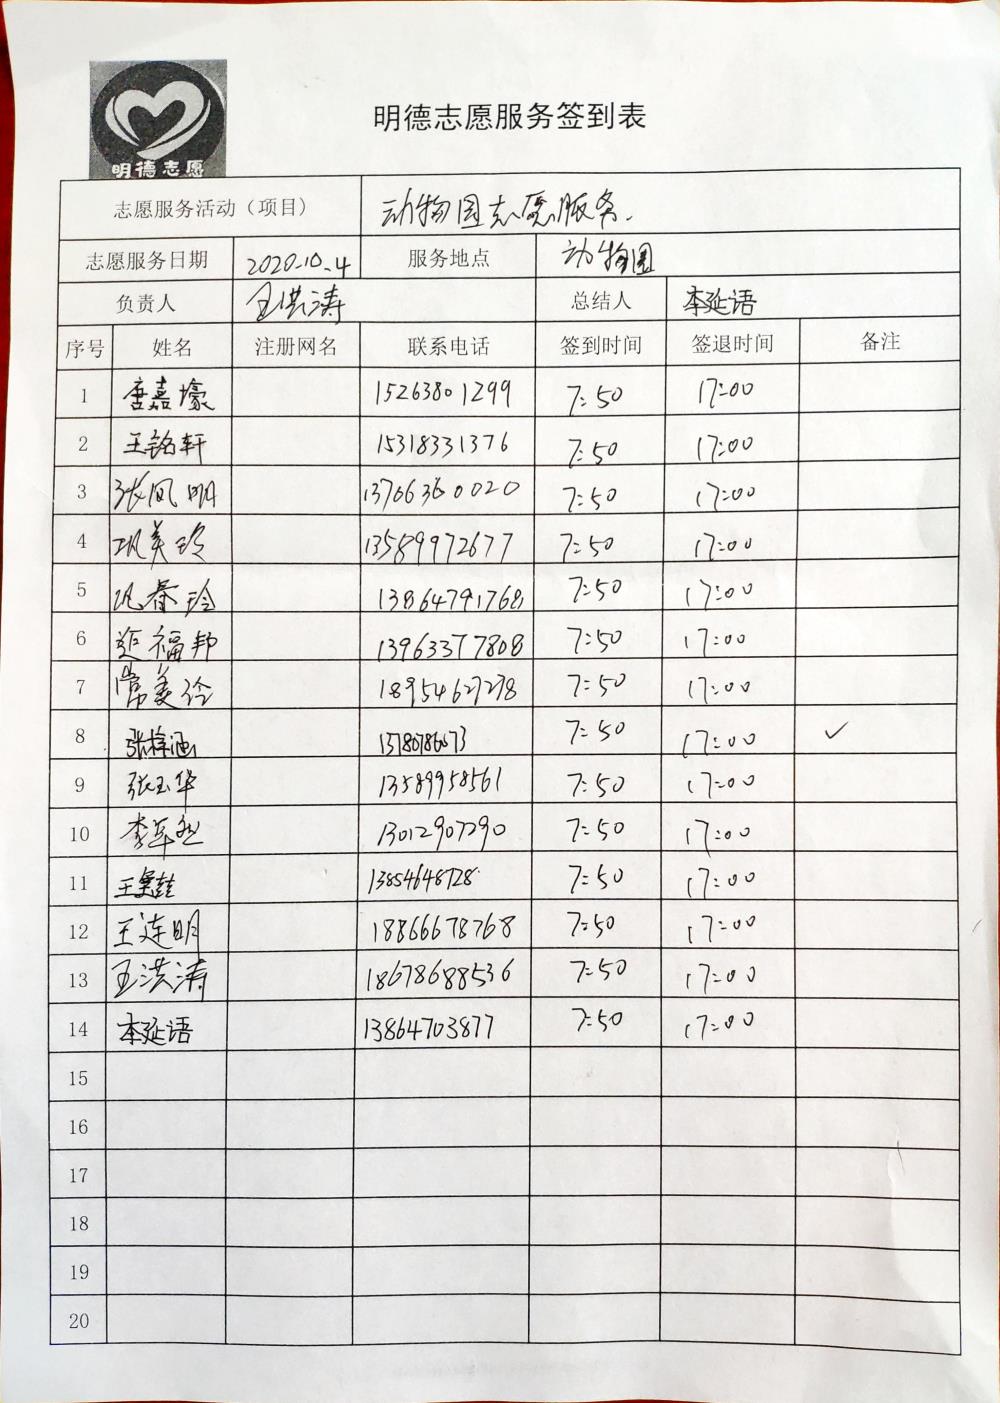 明德志愿
明德志愿服务签到表
志愿服务活动（项目） 动物园志愿服务.
志愿服务日期 2020.10.4 服务地点 动物园
负责人 王洪涛 总结人 李延语
序号 姓名 注册网名 联系电话 签到时间 签退时间 备注
1 唐嘉壕 15263801299 7:50 17:00
2 王铭轩 15318331376 7:50 17:00
3 张凤明 13766360020 7:50 17:00
4 巩美玲 13589972677 7:50 17:00
5 巩春玲 13864791768 7:50 17:00
6 福邦 13963377808 7:50 17:00
7 常美玲 18954627278 7:50 17:00
8 张梓涵 13780786073 7:50 17:00 ✓
9 张玉华 13589958561 7:50 17:00
10 李 13012907290 7:50 17:00
11 王 13854648728 7:50 17:00
12 王连明 18866678768 7:50 17:00
13 王洪涛 18678688536 7:50 17:00
14 李延语 13864703877 7:50 17:00
15
16
17
18
19
20